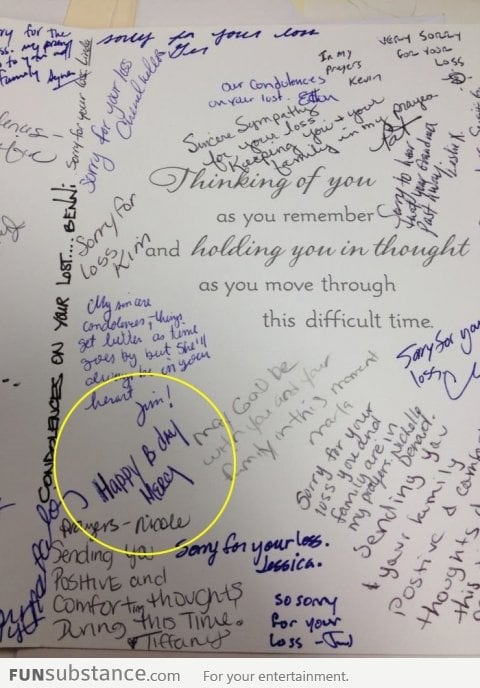 ry for the
ss. my pray
to you and
family
sorry for your loss
In my
Prayers
Kevin
VERY SORRY
FOR YOUR
LOSS
Sorry for your loss
Sorry for your loss
our Condolences
on your lost.
Sincere Sympathy
for your loss
Keeping you & your
family in my prayers
Pat
Sorry to hear
that your Grandma
Past Away.
Leslie K.
CONDOLENCES ON YOUR LOST.... BENNI
Sorry For
loss
Kim
Thinking of you
as you remember
and holding you in thought
as you move through
this difficult time.
My sincere
condolences, things
get better as time
goes by but She'll
always be in your
heart
Jim!
Sorry for you
loss
may God be
with you and your
family in this moment
maria
Happy B day
MERCY
Sorry for your
loss you and
family are in
my prayers. Michelle
Sending you
& your family
Positive & comfort
thoughts d
this
Prayers - Nicole
Sending You
Positive and
Comforting thoughts
During this Time.
Tiffany
Sorry for your loss.
Jessica.
so sorry
for your
loss
FUNsubstance.com For your entertainment.